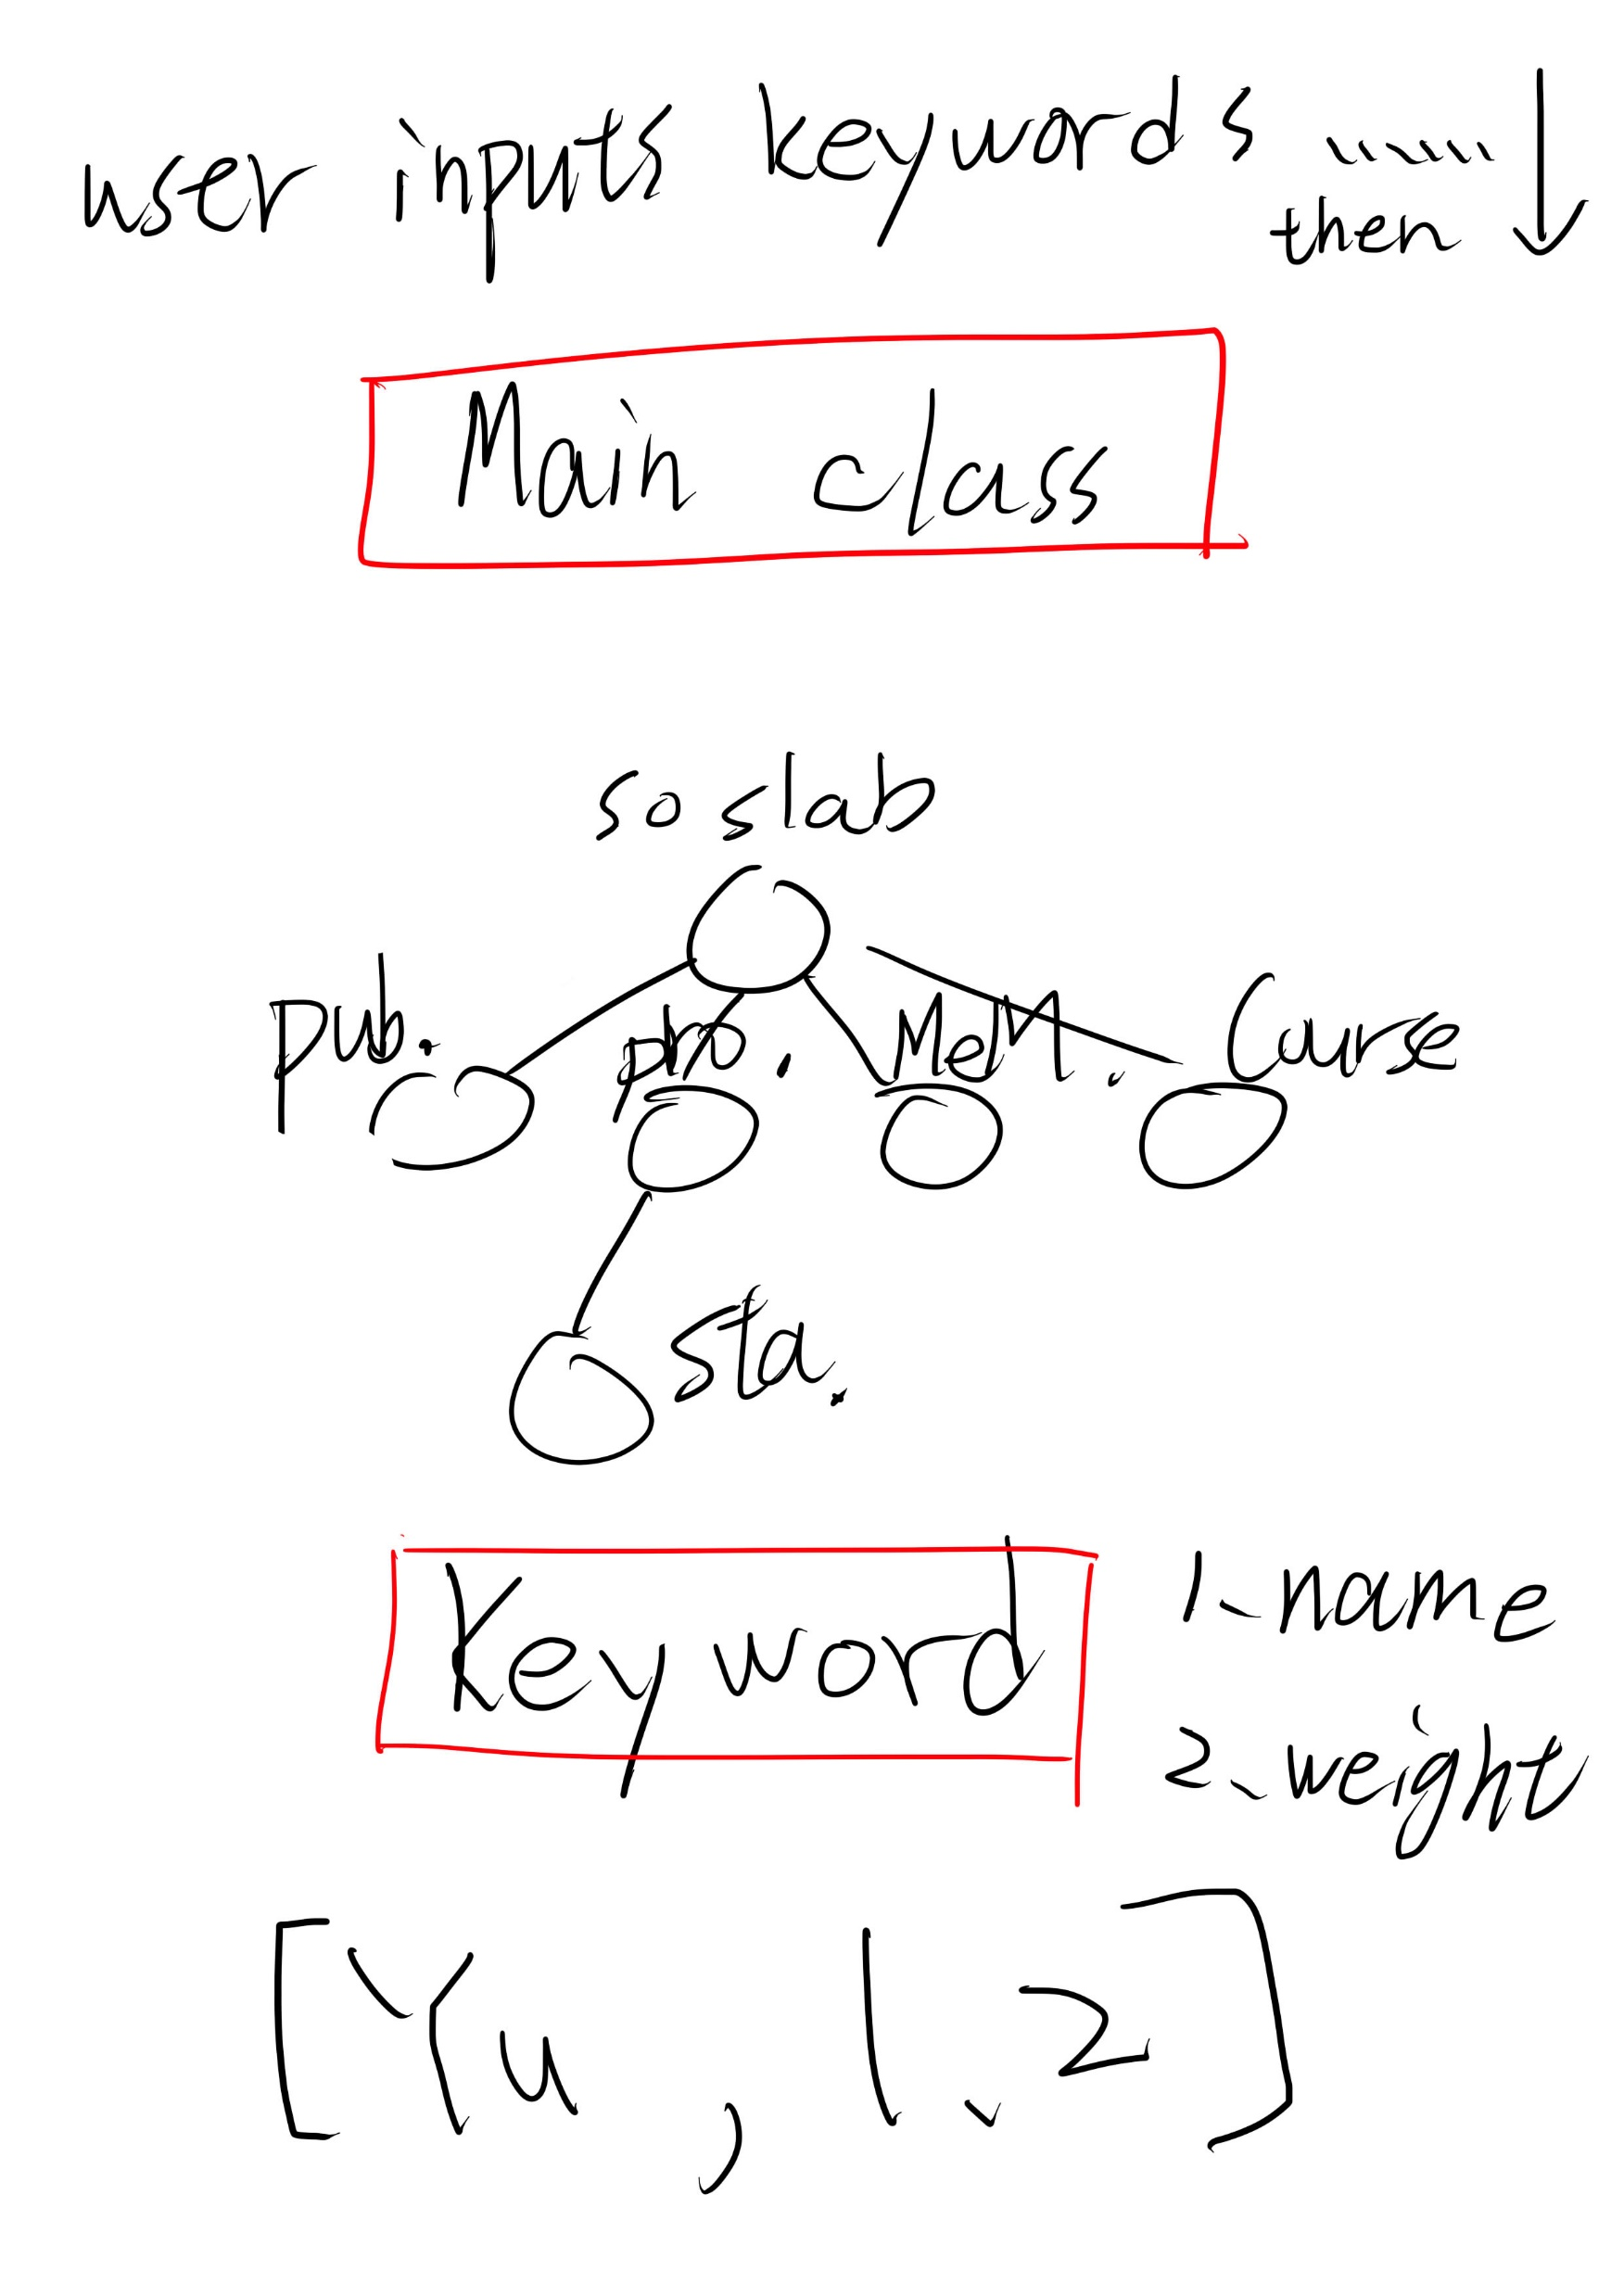 user inputs keywords ....
then ↓
Main class
so slab
puh. pho. Mem. Course
sta.
Keyword
1-name
2-weight
[Yu, 1.2]